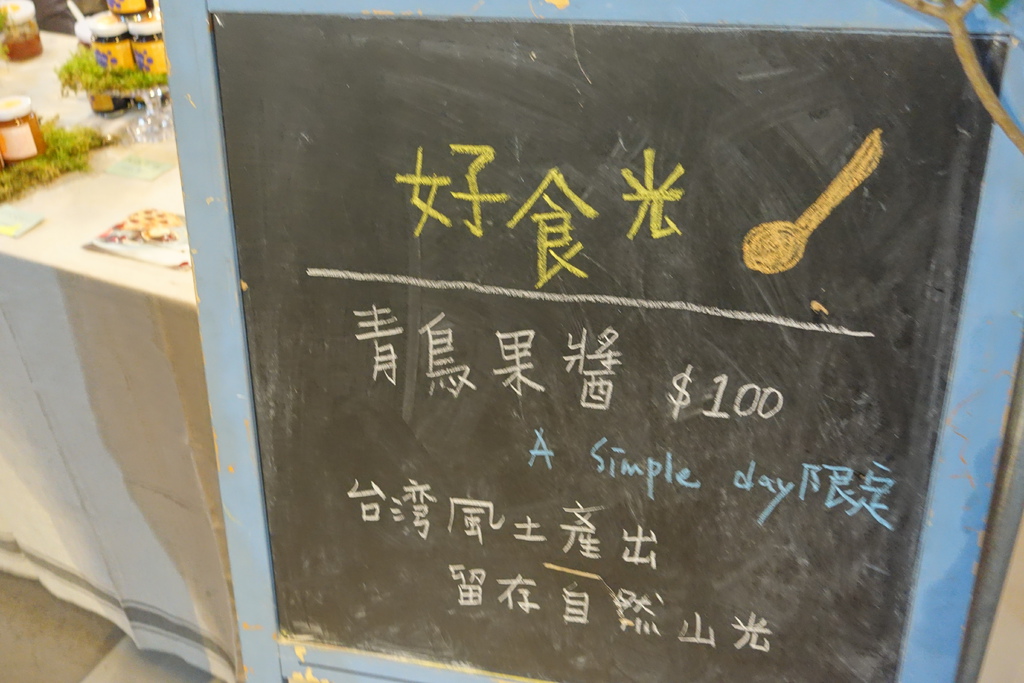 好食光
青鳥果醬 $100
A simple day限定
台湾風土產出
留存自然山光